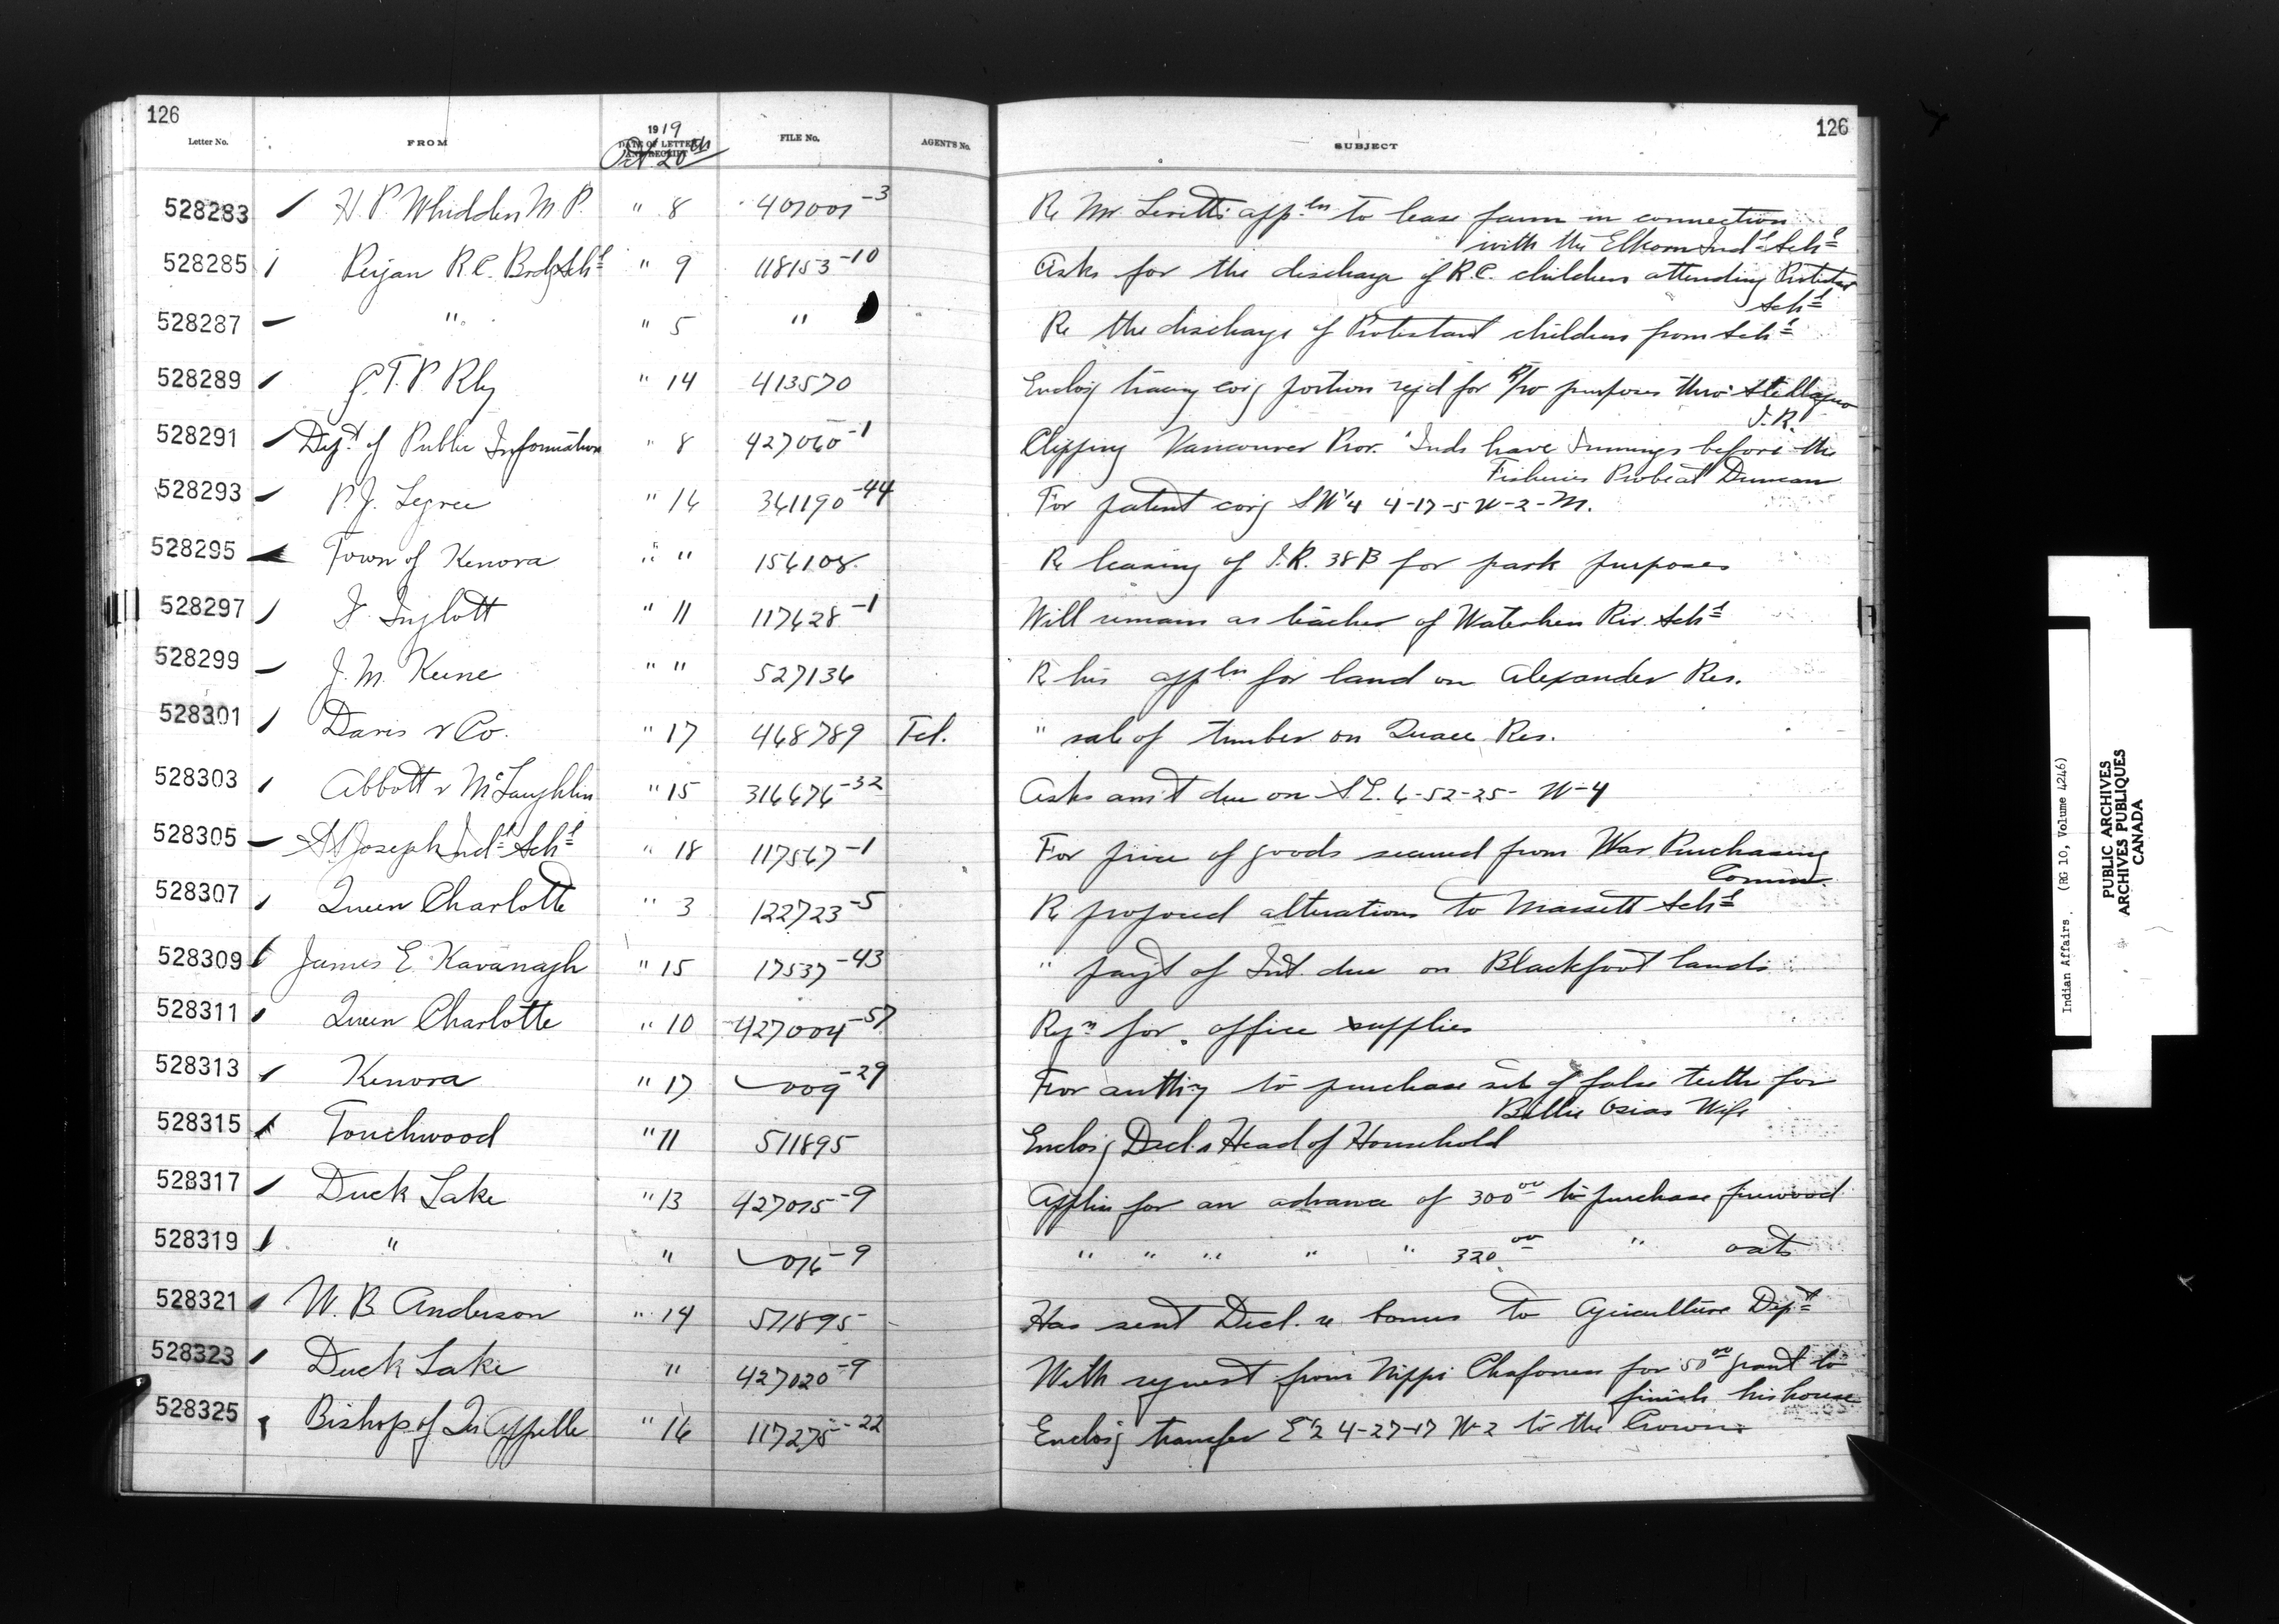 126
126
Letter No.
FROM
1919
DATE OF LETTER AND RECEIPT
Oct 20th
FILE No.
AGENT'S No.
SUBJECT
528283 H. P. Whidden M.P. " 8 407001-3 Re Mr. Levitt's appln to lease farm in connection
with the Elkhorn Indl Schl
528285 Peijan R.C. Brdg Schl " 9 118153-10 Asks for the discharge of R.C. children attending Protestant
Schl
528287 " " 5 " Re the discharge of Protestant children from Schl
528289 G.T.P. Rly " 14 413570 Enclosg tracing covg portion reqd for R/W purposes thro' Stellaquo
I.R.
528291 Dept of Public Information " 8 427060-1 Clipping Vancouver Prov. "Inds have Innings before the
Fisheries Probe at Duncan
528293 P. J. Legree " 16 361190-44 For patent covg SW 1/4 4-17-5 W-2-M.
528295 Town of Kenora " " 156108 Re leasing of I.R. 38B for park purposes
528297 Inglott " 11 117628-1 Will remain as teacher of Waterhen Riv. Schl
528299 J. M. Keene " " 527136 Re his appln for land on Alexander Res.
528301 Davis & Co. " 17 468789 Tel. " sale of timber on Res.
528303 Abbott & McLaughlin " 15 316676-32 Asks amt due on S.E. 6-52-25- W-4
528305 St Joseph Indl Schl " 18 117567-1 For price of goods secured from War Purchasing
Comm.
528307 Queen Charlotte " 3 122723-5 Re proposed alterations to Massett Schl
528309 James E. Kavanagh " 15 17537-43 " payt of Int. due on Blackfoot lands
528311 Queen Charlotte " 10 427004-57 Reqn for office supplies
528313 Kenora " 17 009-29 For authty to purchase set of false teeth for
Billie Osias Wife
528315 Touchwood " 11 511895 Enclosg Decl. Head of Household
528317 Duck Lake " 13 427015-9 Applies for an advance of 300 00 to purchase firewood
528319 " " 016-9 " " " " " 320 00 " oats
528321 W. B. Anderson " 14 511895 Has sent Decl. re bonus to Agriculture Dept
528323 Duck Lake " 427020-9 With request from Nippi for 50 00 grant to
finish his house
528325 Bishop of Qu'Appelle " 16 117275-22 Enclosg transfer E 1/2 4-27-17 W-2 to the Crown
Indian Affairs. (RG 10, Volume 4246)
PUBLIC ARCHIVES
ARCHIVES PUBLIQUES
CANADA